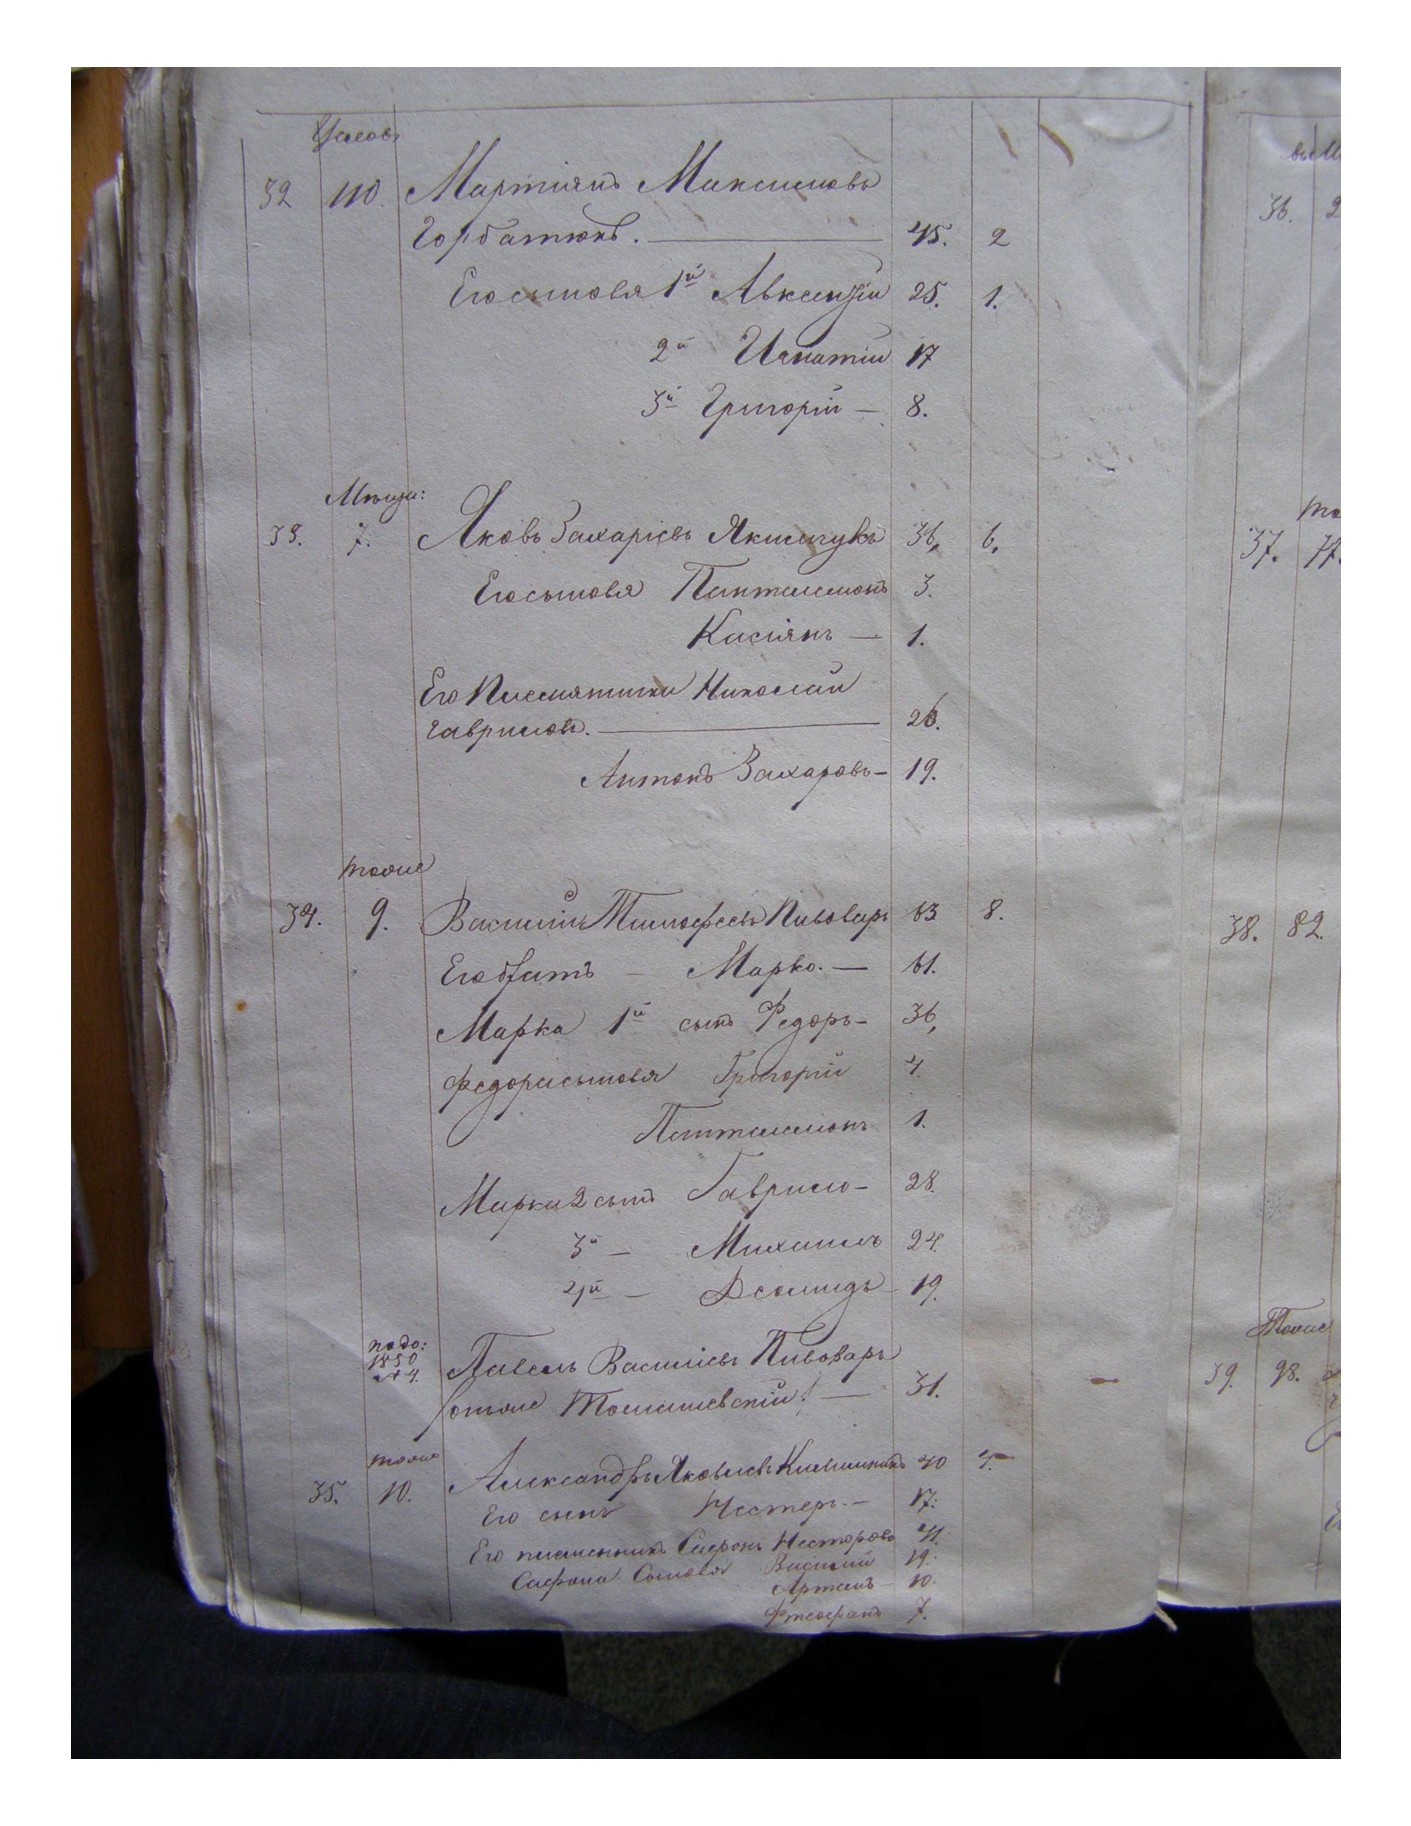 32 110. Мартіянъ Максимовъ
Горбатюкъ. 45. 2
Его сыновья 1й Авксентій 25. 1.
2й Игнатій 17
3й Григорій 8.
Мѣщи:
33. 7. Яковъ Захаріевъ Якимчукъ 36, 6,
Его сыновья Пантелемонъ 3.
Касіянъ 1.
Его Племянники Николай
Гавриловъ. 26.
Антонъ Захаровъ 19.
тоже
34. 9. Василій Тимофеевъ Пивоваръ 63 8.
Его братъ Марко. 61.
Марка 1й сынъ Федоръ 36,
Федора сыновья Григорій 4.
Пантелемонъ 1.
Марка 2 сынъ Гаврило 28.
3й Михаилъ 24.
4й Деомидъ 19.
1850
№ 4. Павелъ Василіевъ Пивоваръ
онъ же 31.
тоже
35. 10. Александръ Яковлевъ 40 4.
Его сынъ Нестеръ 17.
Его племенникъ Сафронъ Несторовъ 41.
Сафрона Сыновья Василій 19.
Артемъ 10.
Феофанъ 7.
36. 2
37. 77.
38. 82.
Тоже
39. 98.